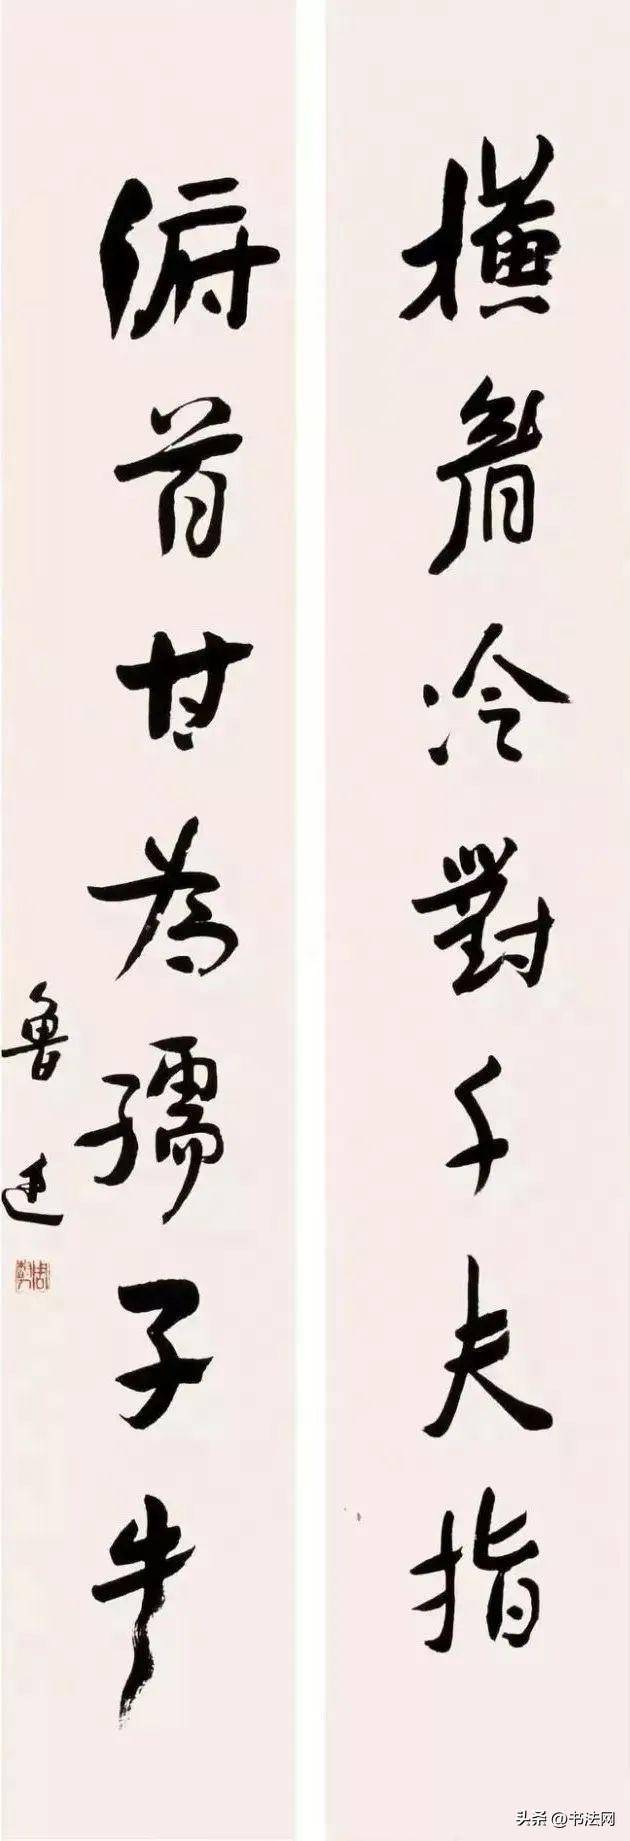 橫眉冷對千夫指
俯首甘為孺子牛
魯迅
头条 @书法网